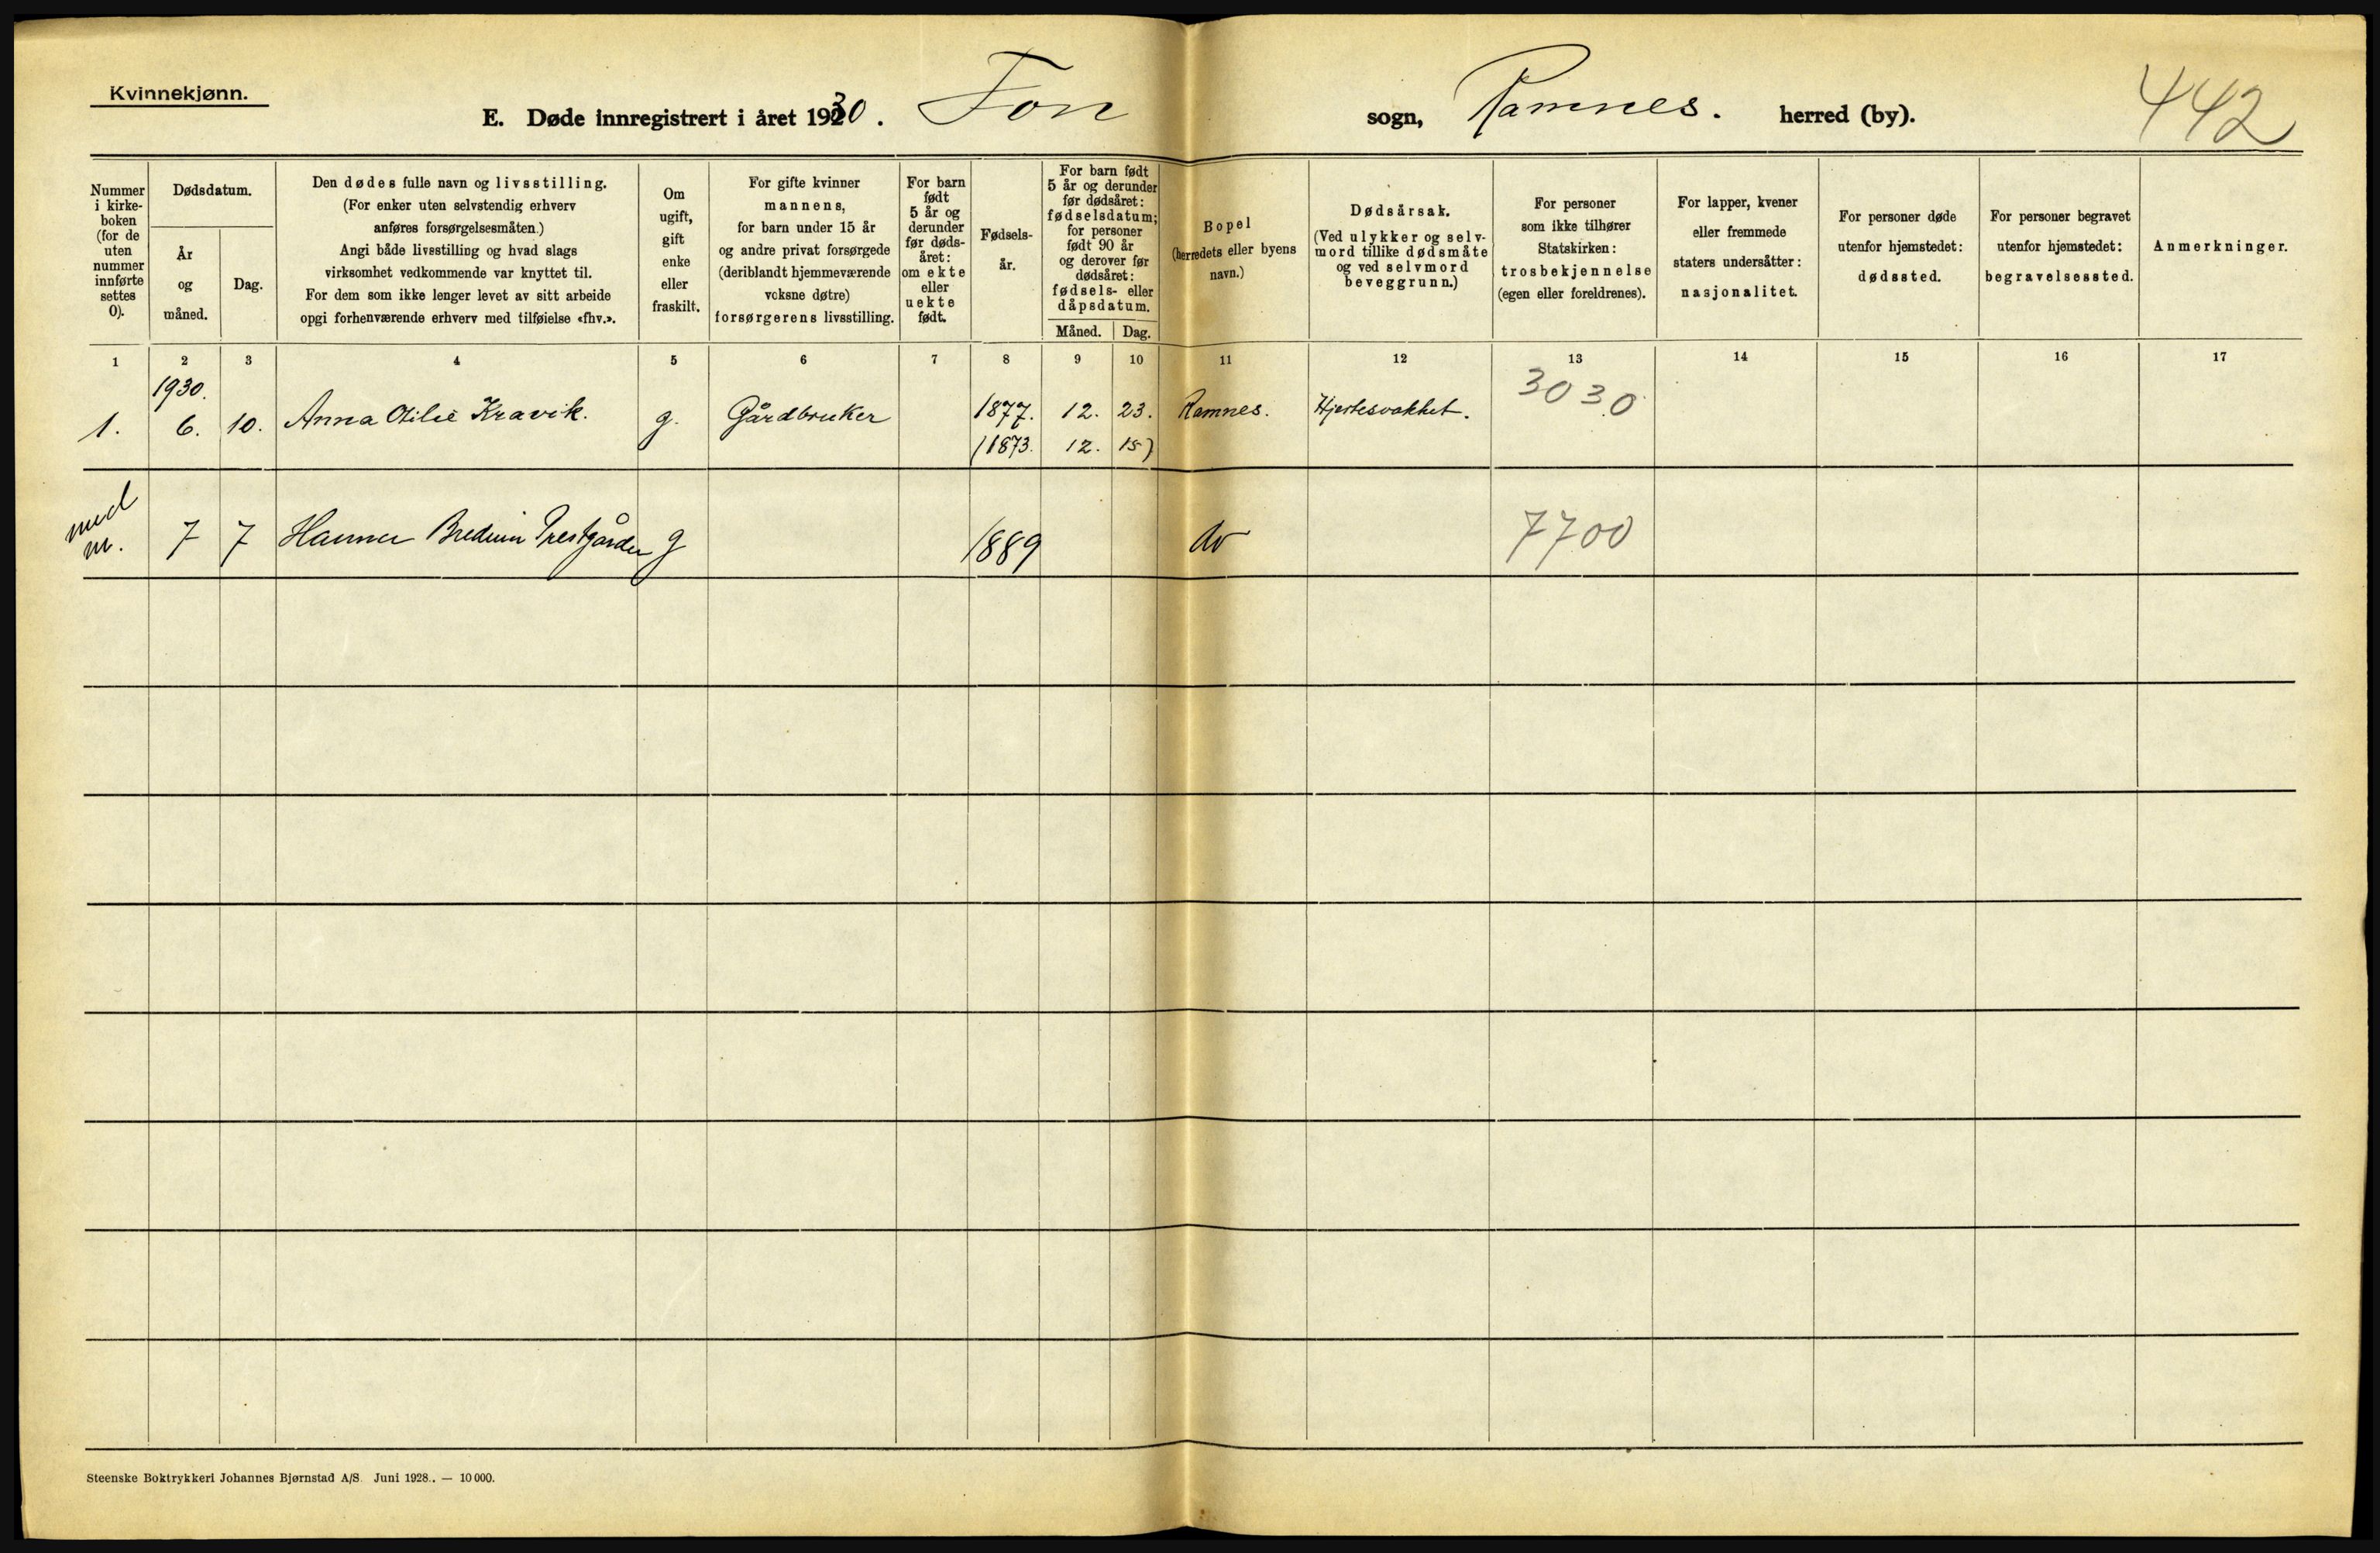 Kvinnekjønn.
E. Døde innregistrert i året 1930. Fon sogn, Ramnes. herred (by).
442
Nummer i kirke-boken (for de uten nummer innførte settes 0).
Dødsdatum.
År og måned.
Dag.
Den dødes fulle navn og livsstilling.
(For enker uten selvstendig erhverv
anføres forsørgelsesmåten.)
Angi både livsstilling og hvad slags
virksomhet vedkommende var knyttet til.
For dem som ikke lenger levet av sitt arbeide
opgi forhenværende erhverv med tilføielse «fhv.».
Om ugift, gift enke eller fraskilt.
For gifte kvinner
mannens,
for barn under 15 år
og andre privat forsørgede
(deriblandt hjemmeværende
voksne døtre)
forsørgerens livsstilling.
For barn født 5 år og derunder før døds-året: om ekte eller uekte født.
Fødsels-år.
For barn født
5 år og derunder
før dødsåret:
fødselsdatum;
for personer
født 90 år
og derover før
dødsåret:
fødsels- eller
dåpsdatum.
Måned. Dag.
Bopel
(herredets eller byens
navn.)
Dødsårsak.
(Ved ulykker og selv-
mord tillike dødsmåte
og ved selvmord
beveggrunn.)
For personer
som ikke tilhører
Statskirken:
trosbekjennelse
(egen eller foreldrenes).
For lapper, kvener
eller fremmede
staters undersåtter:
nasjonalitet.
For personer døde
utenfor hjemstedet:
dødssted.
For personer begravet
utenfor hjemstedet:
begravelsessted.
Anmerkninger.
1 2 3 4 5 6 7 8 9 10 11 12 13 14 15 16 17
1930.
1. 6. 10. Anna Otilie Kravik. g. Gårdbruker 1877. 12. 23. Ramnes. Hjertesvakhet. 3030
(1873. 12. 15)
med
m. 7 7 Hanna Prestgården g 1889 do 7700
Steenske Boktrykkeri Johannes Bjørnstad A/S. Juni 1928. — 10 000.